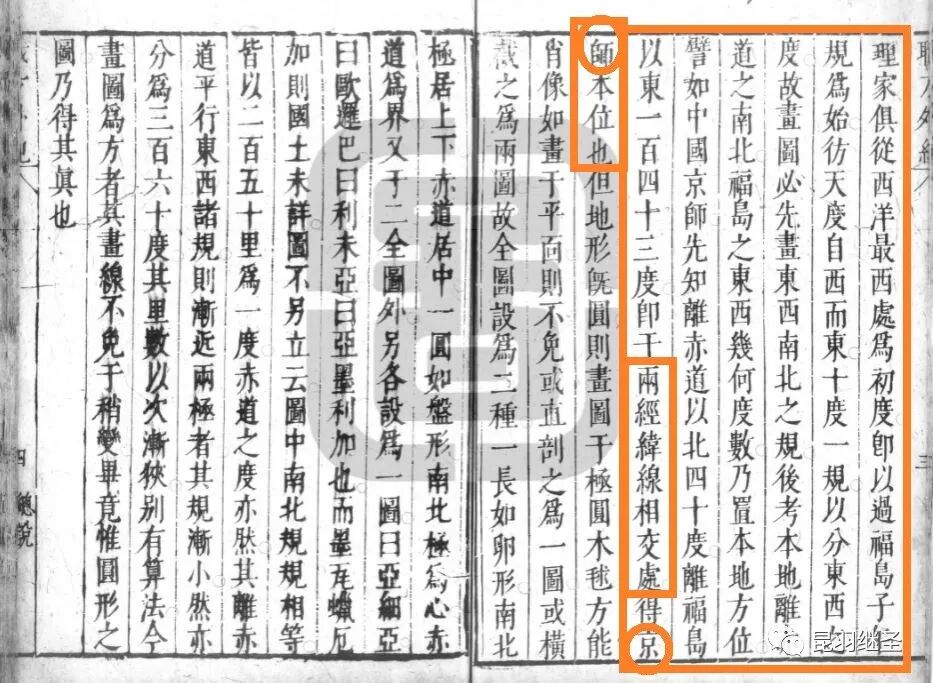 理家俱從西洋最西處爲初度卽以過福島子
規爲始彷天度自西而東十度一規以分東西之
度故畫圖必先畫東西南北之規後考本地離
道之南北福島之東西幾何度數乃置本地方位
譬如中國京師先知離赤道以北四十度離福島
以東一百四十三度卽于兩經緯線相交處得京
師本位也但地形旣圓則畫圖于極圓木毬方能
肖像如畫于平面則不免或直剖之爲一圖或橫
截之爲兩圖故全圖設爲二種一長如卵形南北
極居上下赤道居中一圓如盤形南北極爲心赤
道爲界又于二全圖外另各設爲一圖曰亞細亞
曰歐邏巴曰利未亞曰亞墨利加也而墨瓦蠟尼
加則國土未詳圖不另立云圖中南北規規相等
皆以二百五十里爲一度赤道之度亦然其離赤
道平行東西諸規則漸近兩極者其規漸小然亦
分爲三百六十度其里數以次漸狹别有算法今
畫圖爲方者其畫線不免于稍變畢竟惟圓形之
圖乃得其眞也
三
四
總說
昆羽继圣